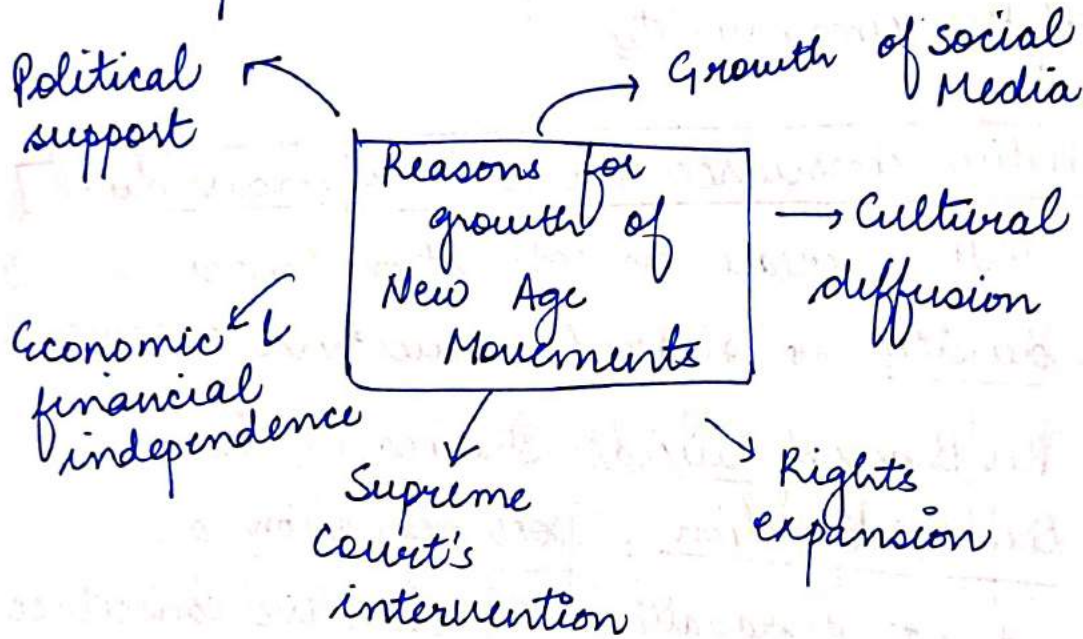 Political
support
Growth of social
Media
Reasons for
growth of
New Age
Movements
→ Cultural
diffusion
Economic &
financial
independence
Supreme
Court's
intervention
Rights
expansion